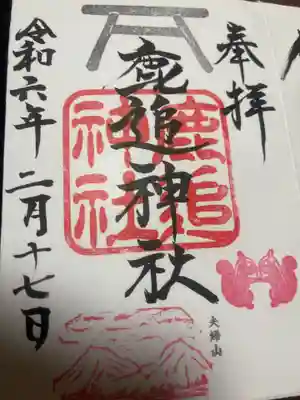 奉拝
鹿追神社
鹿追神社
夫婦山
令和六年二月十七日